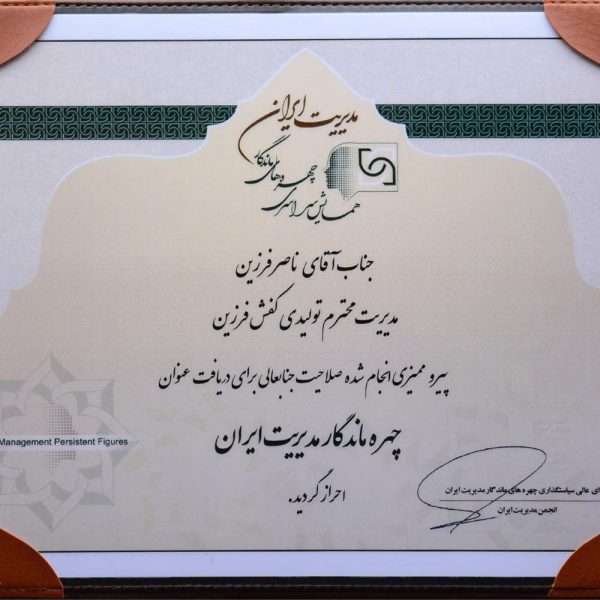 همایش سراسری چهره‌های ماندگار
مدیریت ایران
جناب آقای ناصر فرزین
مدیریت محترم تولیدی کفش فرزین
پیرو ممیزی انجام شده صلاحیت جنابعالی برای دریافت عنوان
چهره ماندگار مدیریت ایران
احراز گردید.
Management Persistent Figures
ای عالی سیاستگذاری چهره های ماندگار مدیریت ایران
انجمن مدیریت ایران